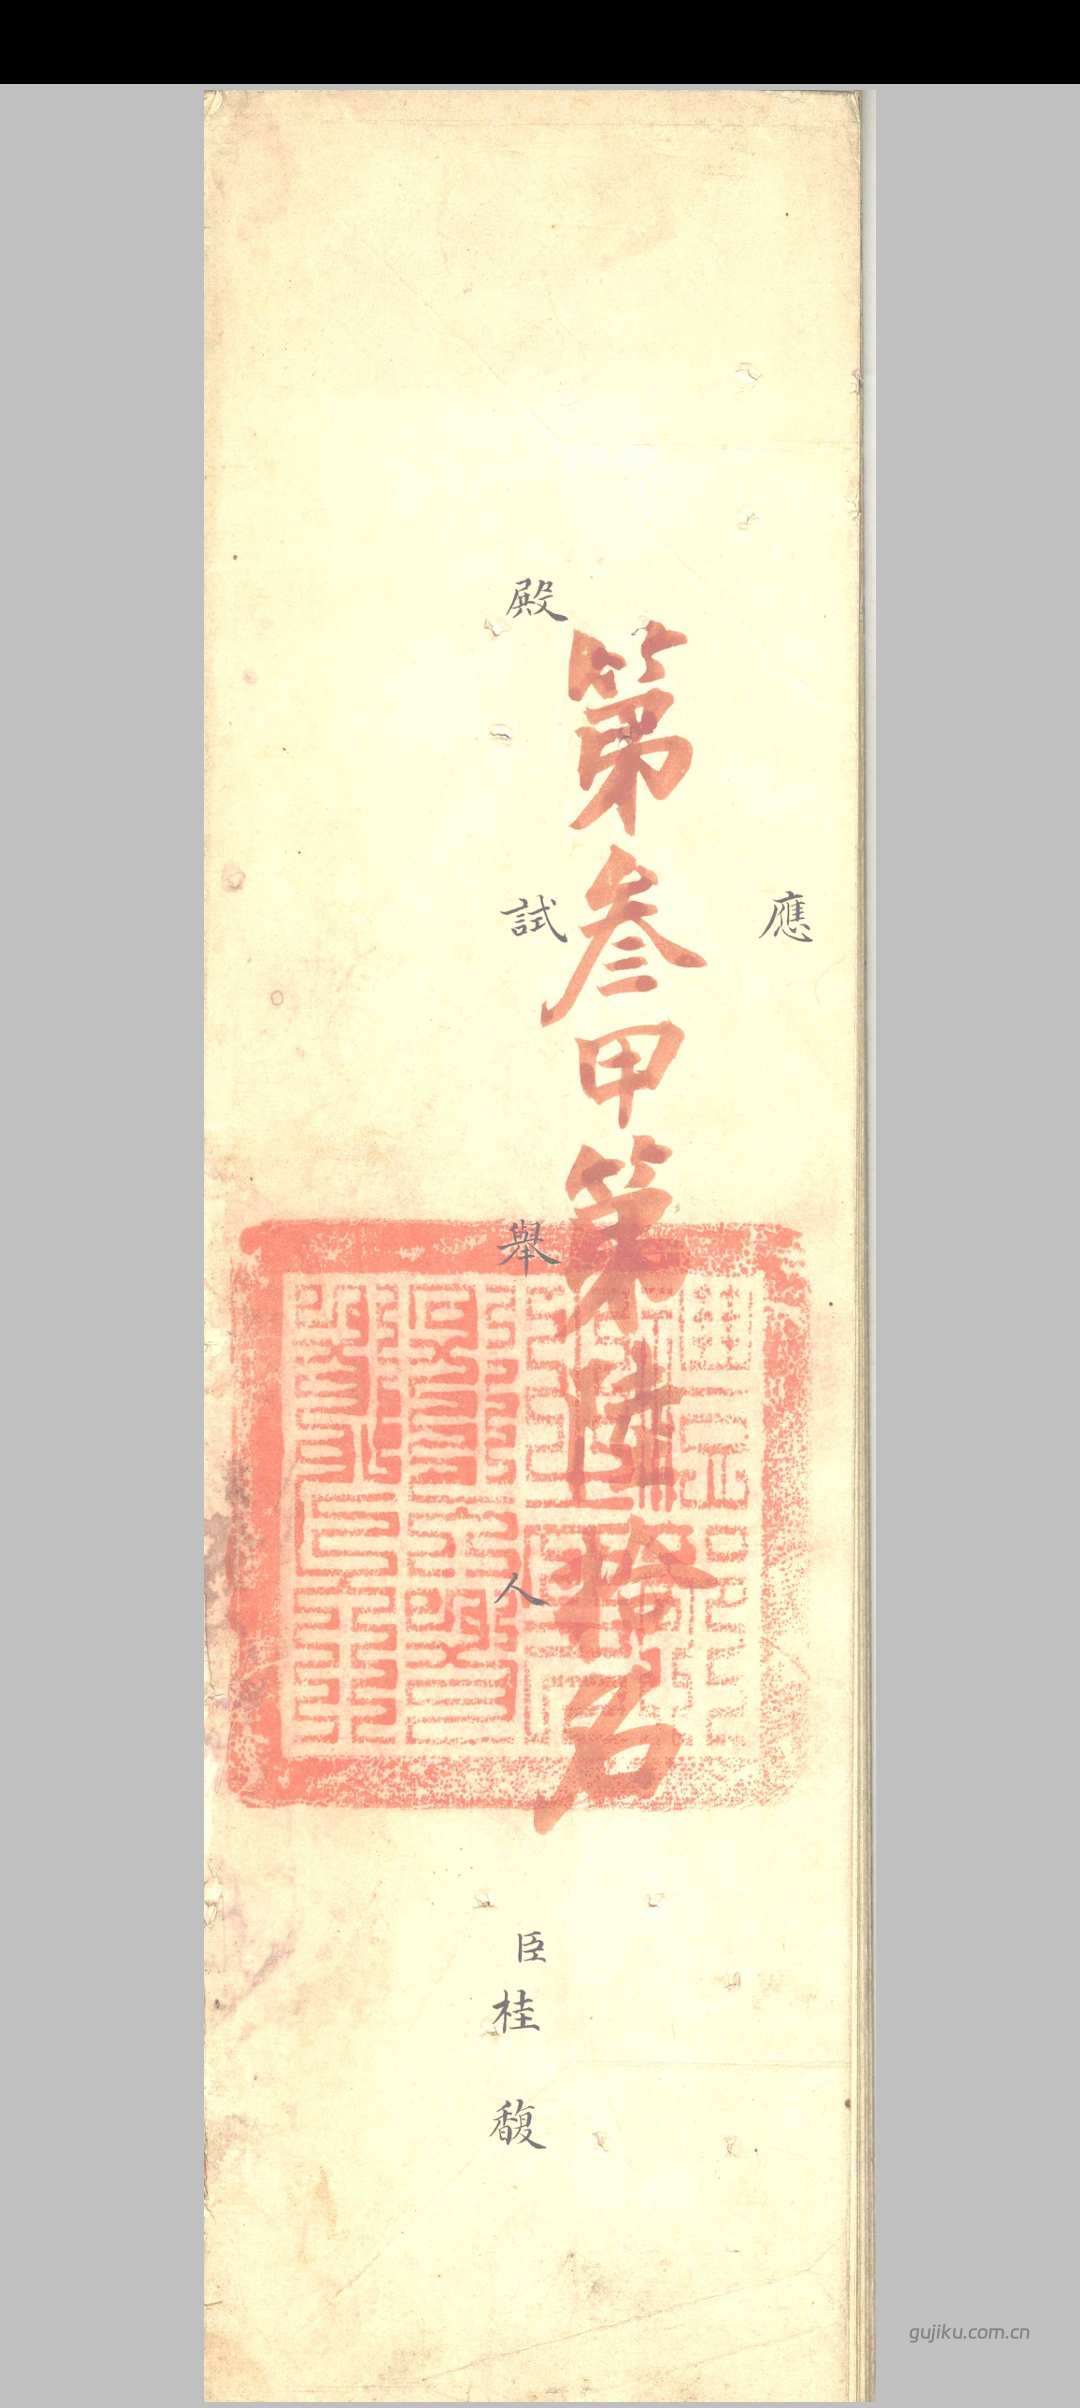 應
殿試舉人臣桂馥
第叄甲第陸拾名
gujiku.com.cn